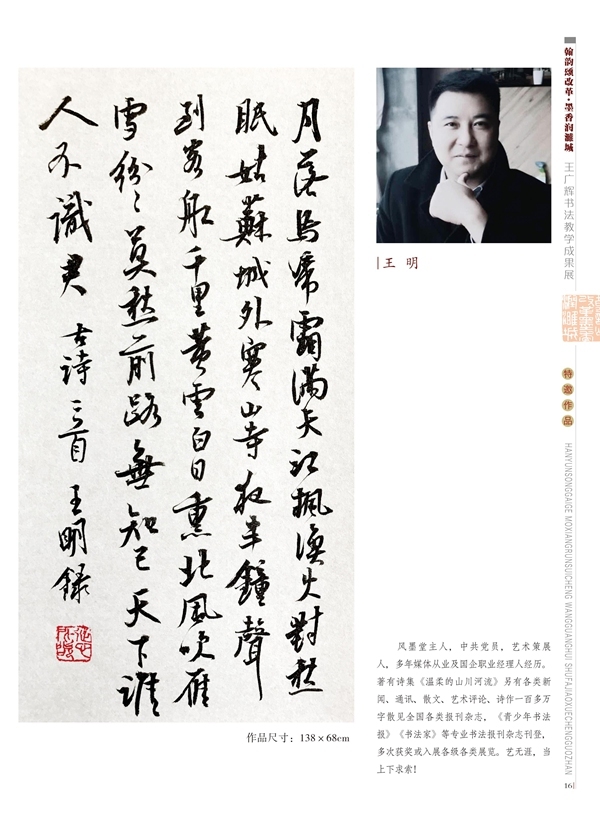 月落烏啼霜滿天江楓漁火對愁
眠姑蘇城外寒山寺夜半鐘聲
到客船千里黃雲白日熏北風吹雁
雪紛〻莫愁前路無知己天下誰
人不識君 古詩二首 王明錄
作品尺寸：138×68cm
王 明
风墨堂主人，中共党员，艺术策展
人，多年媒体从业及国企职业经理人经历。
著有诗集《温柔的山川河流》另有各类新
闻、通讯、散文、艺术评论、诗作一百多万
字散见全国各类报刊杂志，《青少年书法
报》《书法家》等专业书法报刊杂志刊登，
多次获奖或入展各级各类展览。艺无涯，当
上下求索！
翰韵颂改革·墨香润濉城 王广辉书法教学成果展
特邀作品
HANYUNSONGGAIGE MOXIANGRUNSUICHENG WANGGUANGHUI SHUFAJIAOXUECHENGGUOZHAN
16